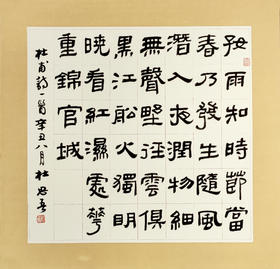 好雨知時節當
春乃發生隨風
潛入夜潤物細
無聲野徑雲俱
黑江船火獨明
曉看紅濕處華
重錦官城
杜甫詩一首辛丑八月杜